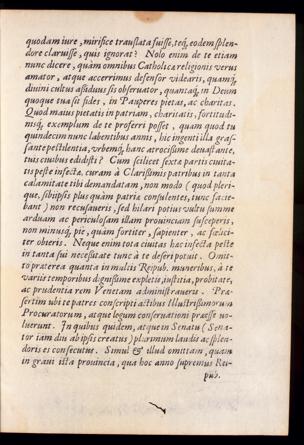 quodam iure, mirifice translata fuisse, teq́; eodem splen-
dore claruisse, quis ignorat? Nolo enim de te etiam
nunc dicere, quàm omnibus Catholicæ religionis verus
amator, atque accerrimus defensor videaris, quamq́;
diuini cultus assiduus sis obseruator, quantaq́; in Deum
quoque tua sit fides, in Pauperes pietas, ac charitas.
Quod maius pietatis in patriam, charitatis, fortitudi-
nisq́; exemplum de te proferri posset, quam quod tu
quindecim nunc labentibus annis, hic ingenti illa graſ-
sante pestilentia, vrbemq́; hanc atrocissime deuastante,
tuis ciuibus edidisti? Cum scilicet sextæ partis ciuita-
tis peste infectæ, curam à Clarissimis patribus in tanta
calamitate tibi demandatam, non modo (quod pleri-
que, sibiipsis plus quàm patriæ consulentes, tunc facie-
bant) non recusaueris, sed hilari potius vultu summè
arduam ac periculosam illam prouinciam susceperis,
non minusq́; piè, quàm fortiter, sapienter, ac fœlici-
ter obieris. Neque enim tota ciuitas hac infecta peste
in tanta sui necessitate tunc à te deseri potuit. Omit-
to præterea quanta in multis Reipub. muneribus, à te
varijs temporibus dignissime expletis, iustitia, probitate,
ac prudentia rem Venetam administraueris. Præ-
sertim vbi te patres conscripti actibus Illustrissimorum
Procuratorum, atque legum conseruationi præesse vo-
luerunt. In quibus quidem, atque in Senatu (Sena-
tor iam diu ab ipsis creatus) plurimum laudis ac splen-
doris es consecutus. Simul & illud omittam, quàm
in graui ista prouincia, qua hoc anno supremus Rei-
pub.